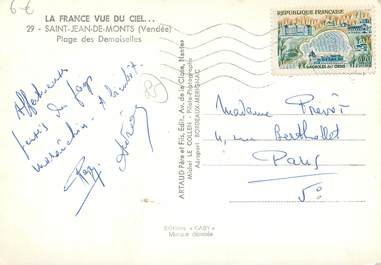 6 €
LA FRANCE VUE DU CIEL...
29 - SAINT-JEAN-DE-MONTS (Vendée)
Plage des Demoiselles
RÉPUBLIQUE FRANÇAISE
BAGNOLES de l'ORNE
Affectueuses
du pays
maraîchin
ARTAUD Père et Fils, Edit., Av. de la Close, Nantes
Michel LE COLLEN - Pilote-Photographe
Aéroport BORDEAUX-MERIGNAC
Madame Prevôt
4, rue Berthollet
Paris
Vº
Editions « GABY »
Marque déposée